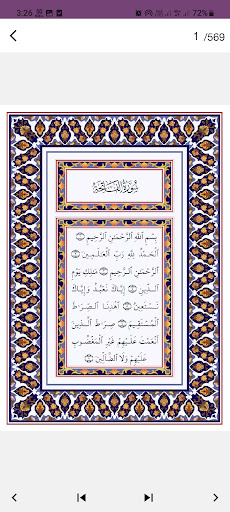 3:26
72%
1 /569
سُورَةُ الفَاتِحَةِ
بِسْمِ اللَّهِ الرَّحْمَٰنِ الرَّحِيمِ ۝
الْحَمْدُ لِلَّهِ رَبِّ الْعَالَمِينَ ۝
الرَّحْمَٰنِ الرَّحِيمِ ۝ مَالِكِ يَوْمِ
الدِّينِ ۝ إِيَّاكَ نَعْبُدُ وَإِيَّاكَ
نَسْتَعِينُ ۝ اهْدِنَا الصِّرَاطَ
الْمُسْتَقِيمَ ۝ صِرَاطَ الَّذِينَ
أَنْعَمْتَ عَلَيْهِمْ غَيْرِ الْمَغْضُوبِ
عَلَيْهِمْ وَلَا الضَّالِّينَ ۝